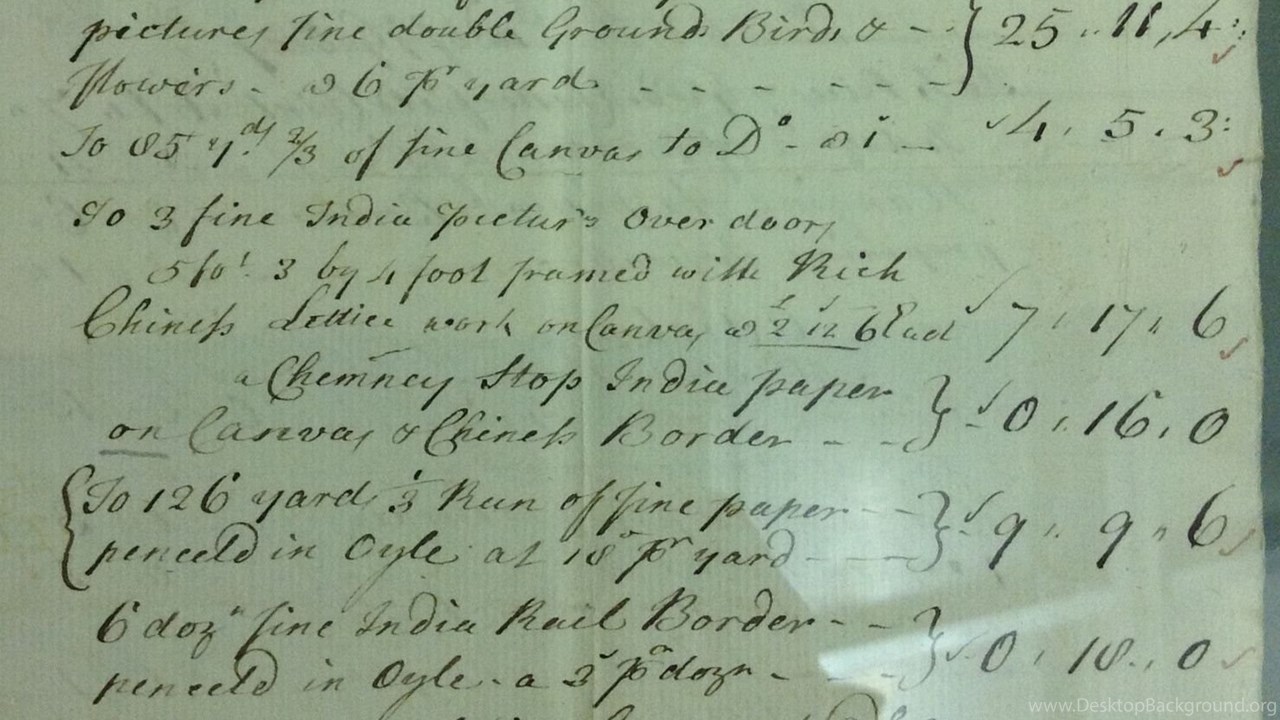 pictures fine double Ground Birds & - - } 25 " 11, 4 :
flowers - a 6 pr yard - - - - - -
To 85 yds 2/3 of fine Canvas to Do - a 1s - 4, 5, 3:
To 3 fine India pictur's over doors
5 fot. 3 by 4 foot framed with Rich
Chiness Lettice work on Canvas a 2 12 6 Each 7, 17, 6
a Chemney Stop India paper
on Canvas & Chiness Border - - } - 0, 16, 0
{ To 126 yards 1/3 Run of fine paper - -
penceld in Oyle at 18d pr yard - - - } - 9, 9, 6
6 dozn fine India Rail Border - -
penceld in Oyle - a 3s pr dozn - - - } - 0, 18, 0
www.DesktopBackground.org